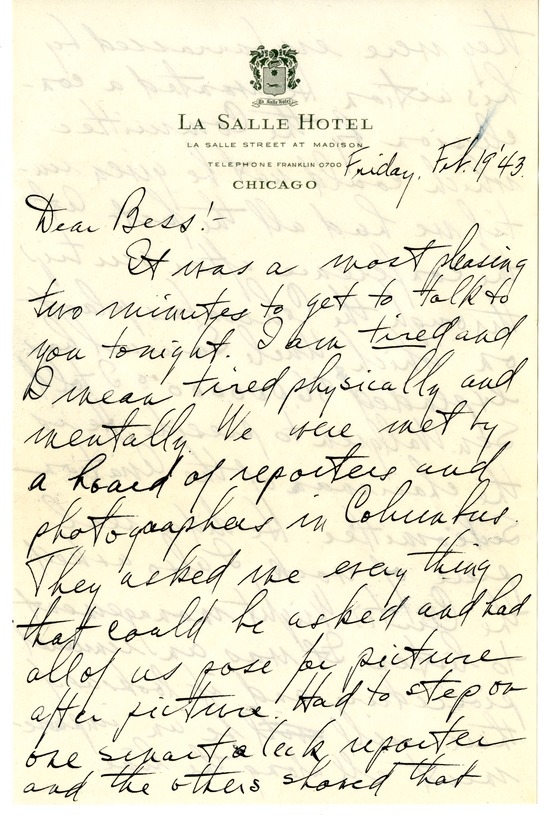 La Salle Hotel
LA SALLE HOTEL
LA SALLE STREET AT MADISON
TELEPHONE FRANKLIN 0700
CHICAGO
Friday, Feb. 19 '43.
Dear Bess:-
It was a most pleasing
two minutes to get to talk to
you tonight. I am tired and
I mean tired physically and
mentally. We were met by
a hoard of reporters and
photographers in Columbus.
They asked me every thing
that could be asked and had
all of us pose for picture
after picture. Had to step on
one smart aleck reporter
and the others showed that